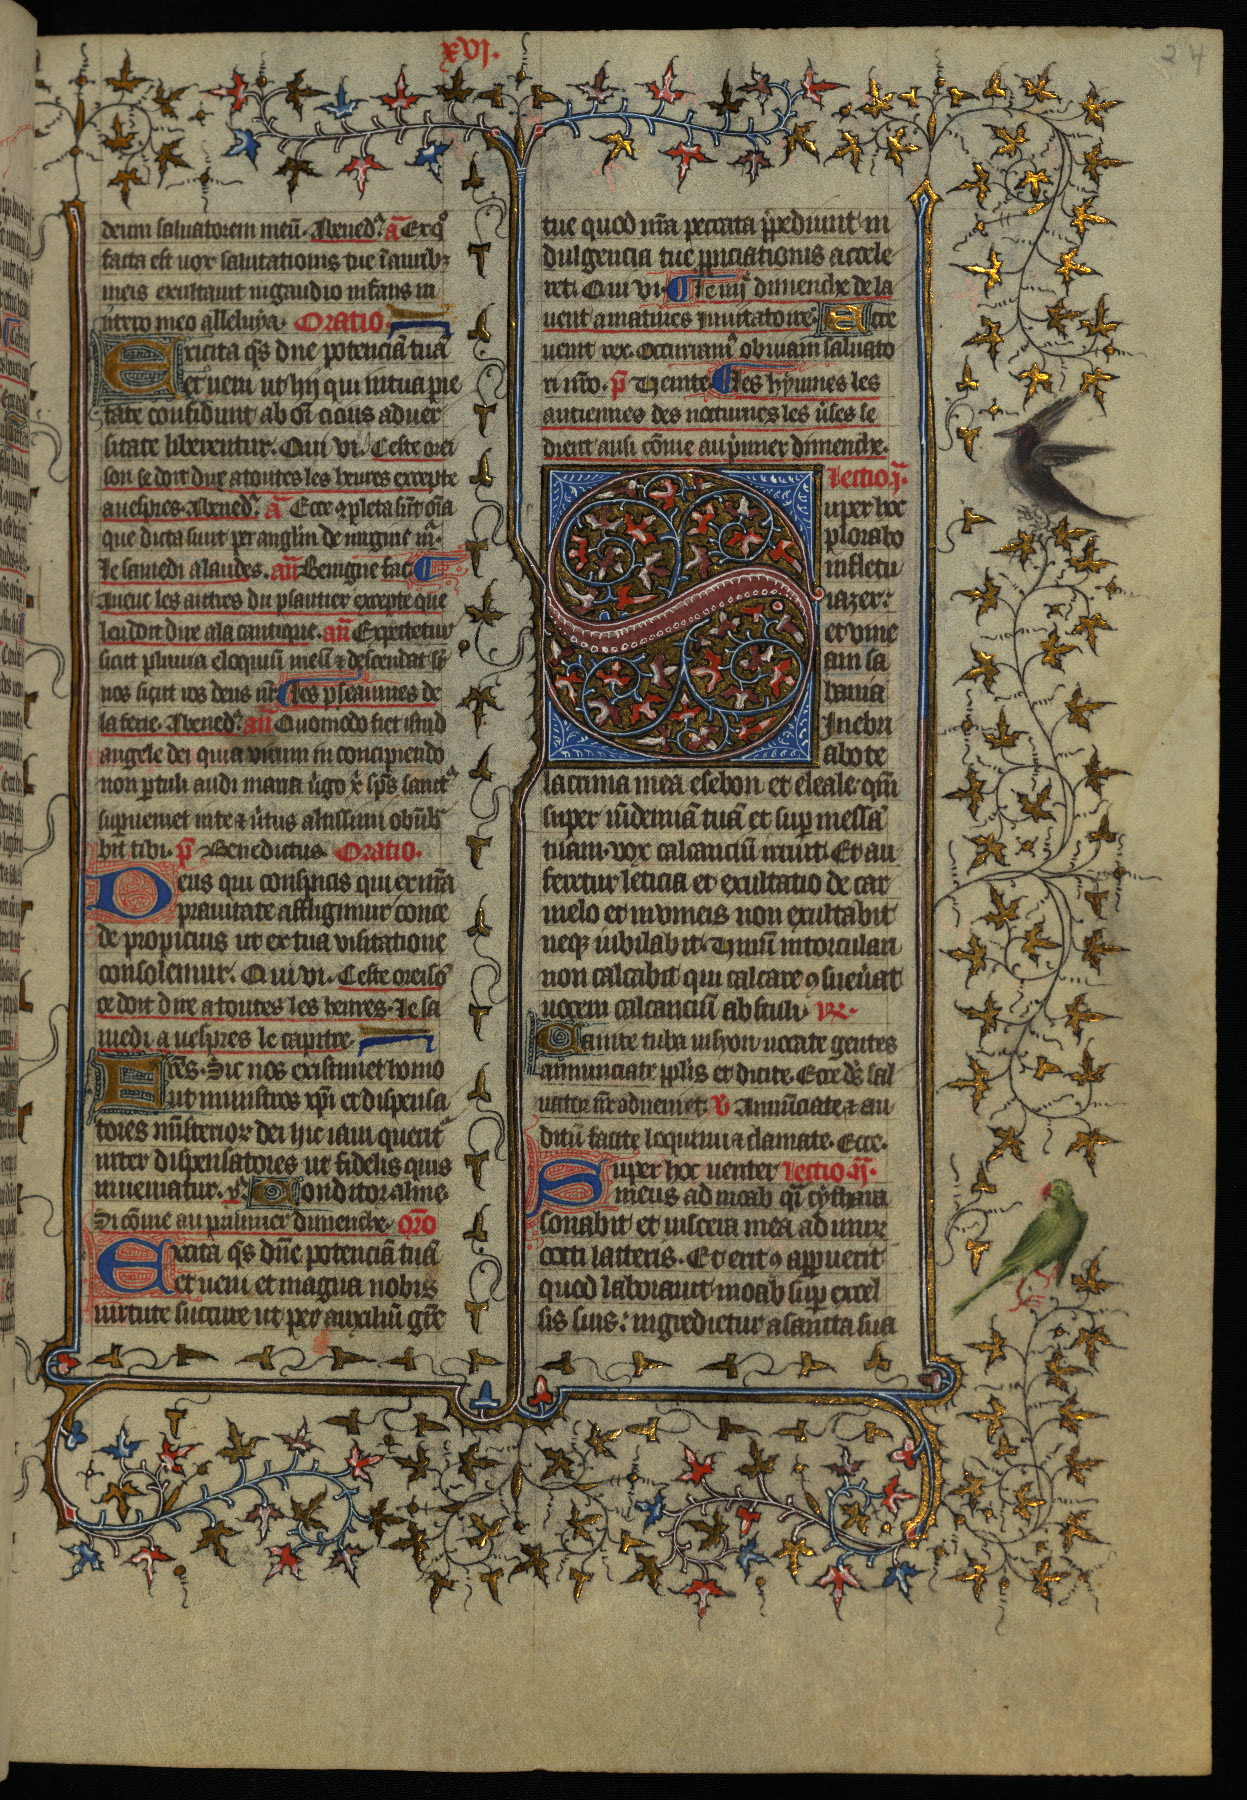 xvj.
24
deum salvatorem meū. Abened⁹. añ Ex q̊
facta est vox salutationis tue ī aurib⁹
meis exultavit in gaudio infans in
utero meo alleluya. Oratio.
Excita q̄s dn̄e potenciā tuā
et veni ut hij qui in tua pie
tate confidunt ab om̄i cicius adver
sitate liberentur. Qui vi. Ceste orei
son se doit dire a toutes les heures excepte
a vespres. Abened⁹. añ Ecce ɔpleta sūt oīa
que dicta sunt per anglm̄ de virgine m̄ᵃ.
Le samedi a laudes. añ Benigne fac
Avecq̄ les autres du psautier excepte que
len doit dire a la cantique. añ Expectetur
sicut pluvia eloquiū meū ⁊ descendat sr̄
nos sicut ros deus nr̄. Les pseaumes de
la ferie. Abened⁹. añ Quomodo fiet istud
angele dei quia virum in concipiendo
non ꝑtuli audi maria v̄go x̄ sp̄s sanct⁹
supveniet in te ⁊ v̄tus altissimi obūb
bit tibi. p̄ Benedictus. Oratio.
Deus qui conspicis qui ex nr̄a
pravitate affligimur conce
de propicius ut ex tua visitatione
consolemur. Qui vi. Ceste oreisō
ce doit dire a toutes les heures. Le sa
medi a vespres le capitre
Fr̄es. Sic nos existimet homo
ut ministros xp̄i et dispensa
tores misterioꝝ dei hic iam querit᷑
inter dispensatores ut fidelis quis
inveniatur. y̅. Conditor alme.
Si cōme au premier dimenche. or̄o
Excita q̄s dn̄e potenciā tuā
et veni et magna nobis
virtute succure ut per auxiliū gr̄e
tue quod nr̄a peccata p̄pediunt in
dulgencia tue ꝓpiciationis accele
ret. Qui vi. Le iiijᵉ dimenche de la
vent a matines invitatoire. Ecce
venit rex. Occuram⁹ obviam salvato
ri nr̄o. p̄ Venite. Les hymnes les
antiennes des nocturnes les v̄ses se
dient ausi cōme au p̄mier dimenche.
Lectio .jᵃ.
Super hoc
plorabo
in fletu
iazer:
et vine
am sa
bama
Inebri
abo te
lacrima mea esebon et eleale. qm̄
super vīdemiā tuā et sup messē
tuam vox calcanciū irruit. Et au
feretur leticia et exultatio de car
melo et in vineis non exultabit
neqꝫ iubilabit. Vinū in torculari
non calcabit qui calcare ɔsueverat
vocem calcanciū abstuli. ℟.
Canite tuba in syon vocate gentes
annunciate pplīs et dicite. Ecce dc̄ sal
vator nr̄ adveniet. ℣ Annūciate ⁊ au
ditū facite loquimi ⁊ clamate. Ecce.
Super hoc venter Lectio .ijᵃ.
meus ad moab qⁱ cythara
sonabit et viscera mea ad muꝝ
cocti lateris. Et erit ɔ apparuerit
quod laboravit moab sup excel
sis suis: ingredietur a sancta sua